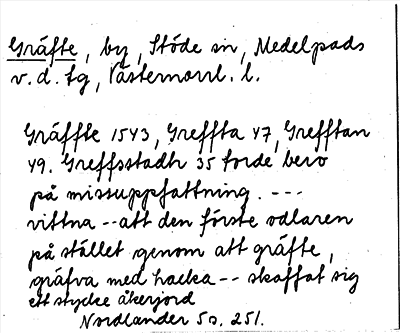 Gräfte, by, Stöde sn, Medelpads
v. d. tg, Västernorrl. l.
Gräffte 1543, Greffta 47, Grefftan
49. Greffsstadh 35 torde bero
på missuppfattning. ---
vittna -- att den förste odlaren
på stället genom att gräfte,
gräfva med hacka -- skaffat sig
ett stycke åkerjord
Nordlander 5a, 251.